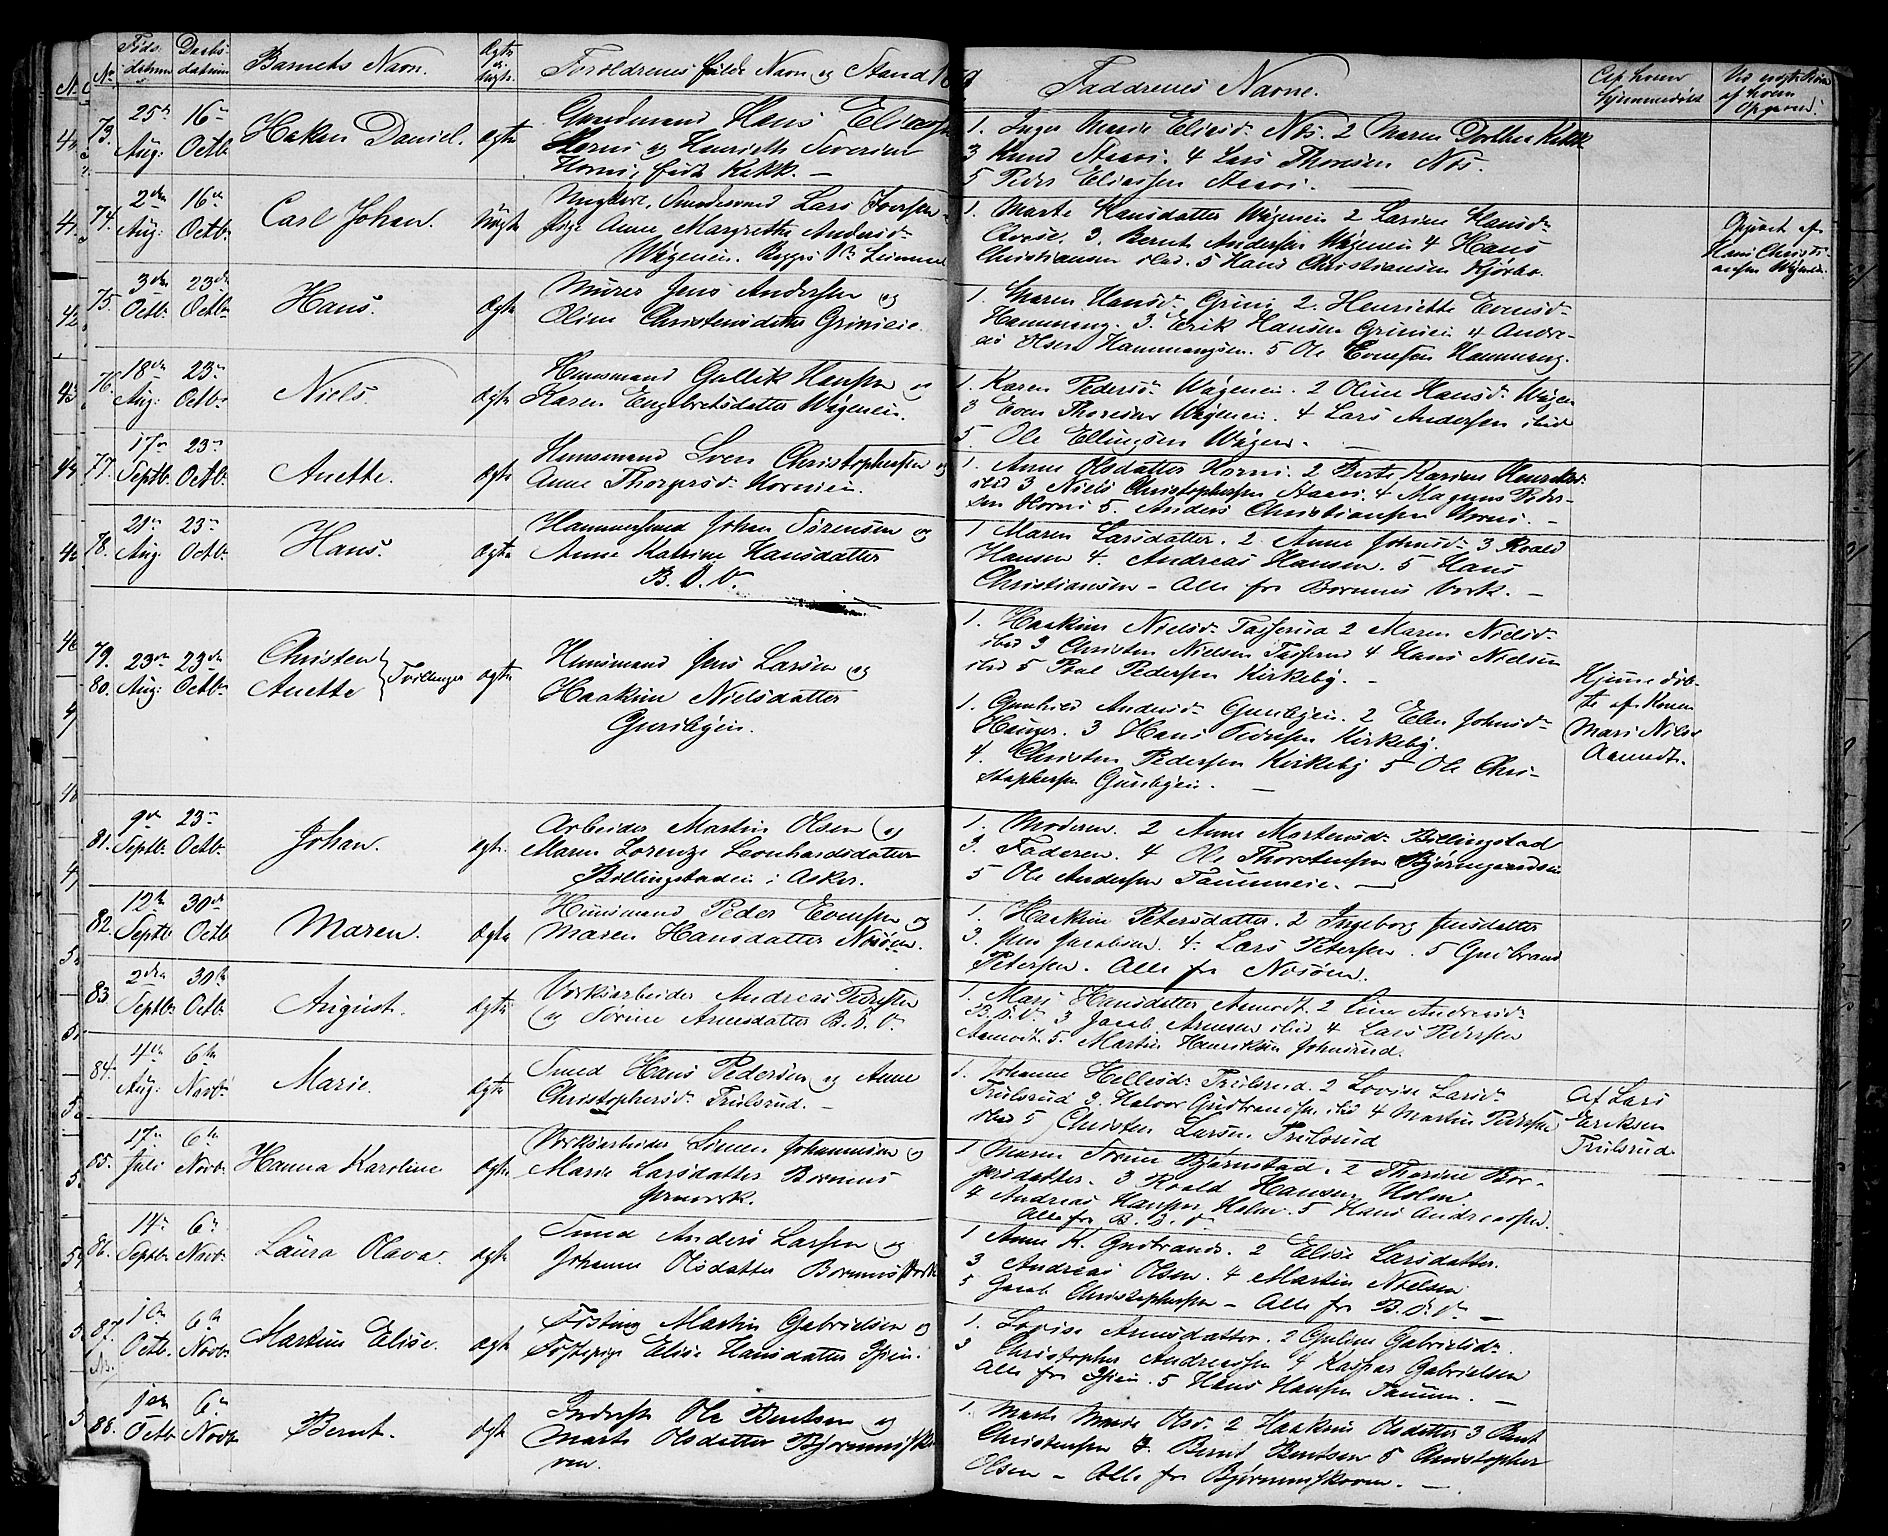 No Føds- datum Daabs- datum Barnets Navn. Ægte ell. Uægte. Forældrenes fulde Navn og Stand Faddrenes Navne. Af hvem hjemmedøbt
73. 25de Aug: 16de Octb. Haken Daniel. ægte
Gaardmand Hans Eliassen
Horni og Henriette Severine
Horni, født Kekk. —
1. Inger Marie Eliasd. Nøs. 2 Maren Dorthea Kekk
3 Knud Staavi. 4 Lars Thoresen Nøs.
5 Peder Eliassen Staavi. —
74. 2den Aug: 16de Octb. Carl Johan. Uægte
Ungkarl, Lars Iversen
Pige Anne Margrethe Andersd.
Wøyeneie.
1. Marte Hansdatter Wøyeneie 2 Larine Hansd.
3. Bernt Andersen Wøyeneie 4 Hans
Christiansen ibid. 5 Hans Christiansen
Opgivet af
Hans Christi-
ansen Wøyeneie.
75. 3den Octb. 23de Octb. Hans. ægte
Murer Jens Andersen og
Oline Christensdatter Grinieie.
1. Maren Hansd. Grini 2. Henriette Evensd.
Hammeng. 3. Erik Hansen Grinieie 4 Andre-
as Olsen Hammengeie. 5 Ole Evensen Hammeng.
76. 18de Aug: 23de Octb. Niels. ægte
Huusmand Gullik Hansen og
Karen Engebretsdatter Wøyeneie.
1. Karen Pedersd. Wøyeneie. 2 Oline Hansd. Wøyen
3 Even Thoresen Wøyeneie. 4 Lars Andersen ibid
5. Ole Ellingsen Wøyen. —
77. 17de Septb. 23de Octb. Anette. ægte
Huusmand Sven Christophersen og
Anne Thorgersd. Hornieie.
1. Anne Olsdatter Horni. 2 Berte Karine Henriksd.
ibid 3 Niels Christophersen Staavi. 4 Magnus Peder-
sen Horni 5. Anders Christiansen Horni. —
78. 21de Aug 23de Octb. Hans. ægte
Hammersmed Johan Sørensen og
Anne Katrine Hansdatter
B. J. V.
1 Maren Larsdatter. 2. Anne Johnsd. 3 Roald
Hansen 4. Andreas Hansen. 5 Hans
Christiansen — Alle fra Bærums Værk. —
79. 80. 23de Aug: 23de Octb. Christen Anette } Tvillinger ægte
Huusmand Jens Larsen og
Haakine Nielsdatter
Gunsbyeie.
1. Haakine Nielsd. 2 Maren Nielsd.
ibid 3 Christen Nielsen 4 Hans Nielsen
ibid 5 Poul Pedersen Kirkeby. —
1. Gunhild Andersd. 2 Elen Johnsd.
Hauger. 3 Hans Pedersen Kirkeby.
4. Christen Pedersen Kirkeby 5 Ole Chri-
stophersen —
Hjemmedøb-
te af Konen
Mari Nielsd
Aamodt.
81. 9de Septb. 23de Octb. Johan. ægte
Arbeider Martin Olsen og
Maren Lorenze Leonhardsdatter
Billingstadeie i Asker.
1. Moderen. 2 Anne Mortensd. Billingstad
3. Faderen. 4 Ole Thorstensen Bjerregaardseie
5 Ole Andersen Tanumeie. —
82. 12te Septb 30de Octb Maren. ægte
Huusmand Peder Evensen og
Maren Hansdatter Nøsøen.
1. Haakine Petersdatter. 2 Ingeborg Jensdatter
3. Jens Jacobsen. 4. Lars Petersen. 5 Gudbrand
Petersen. Alle fra Nøsøen.
83. 2den Septb. 30te Octb. August. ægte
Værksarbeider Andreas Pedersen
og Sørine Arnesdatter B. J. V.
1. Mari Hansdatter Aamodt. 2 Line Andersd.
B. J. V. 3 Jacob Arnesen ibid 4 Lars Pedersen
Aamodt. 5. Martin Henriksen Johnsrud.
84. 4de Aug: 6te Novb. Marie. ægte
Smed Hans Pedersen og Anne
Christophersd. Trulsrud. —
1. Johanne Hellesd. Trulsrud. 2 Lovise Larsd.
Trulsrud 3. Halvor Gudbrandsen ibid 4 Martin Pedersen
ibid 5 Christen Larsen Trulsrud
Af Lars
Eriksen
Trulsrud
85. 17de Juli 6te Novb. Hanna Karoline ægte
Værksarbeider Simen Johannesen og
Marie Larsdatter Bærums
Jernværk.
1 Maren Sørine Bjørnstad. 2 Thorine Bor-
gersdatter. 3 Roald Hansen Holm.
4 Andreas Hansen Holm. 5 Hans Andreassen.
Alle fra B. J. V.
86. 14de Septb. 6te Novb. Laura Olava. ægte
Smed Anders Larsen og
Johanne Olsdatter Bærums Værk
1 Anne K. Gudbrands. 2 Elise Larsdatter.
3 Andreas Olsen. 4 Martin Nielsen
5 Jacob Christophersen — Alle fra B. J. V. —
87. NB. 1ste Octb. 6te Novb. Martine Elise. ægte
Føsting Martin Gabrielsen og
Føstepige Elise Hansdatter Øieie.
1. Lovise Arnesdatter. 2 Guline Gabrielsd.
3 Christopher Andreassen 4 Kaspar Gabrielsen
Alle fra Øieie. 5 Hans Hansen Tanum. —
88. 1ste Octb. 6te Novb Bernt. ægte
Inderst Ole Berntsen og
Marte Olsdatter Bjørumssko-
ven.
1. Marte Marie Olsd. 2 Haakine Olsdatter 3 Bernt
Christensen 4. Bernt Berntsen 5 Christopher
Olsen — Alle fra Bjørumsskoven. —